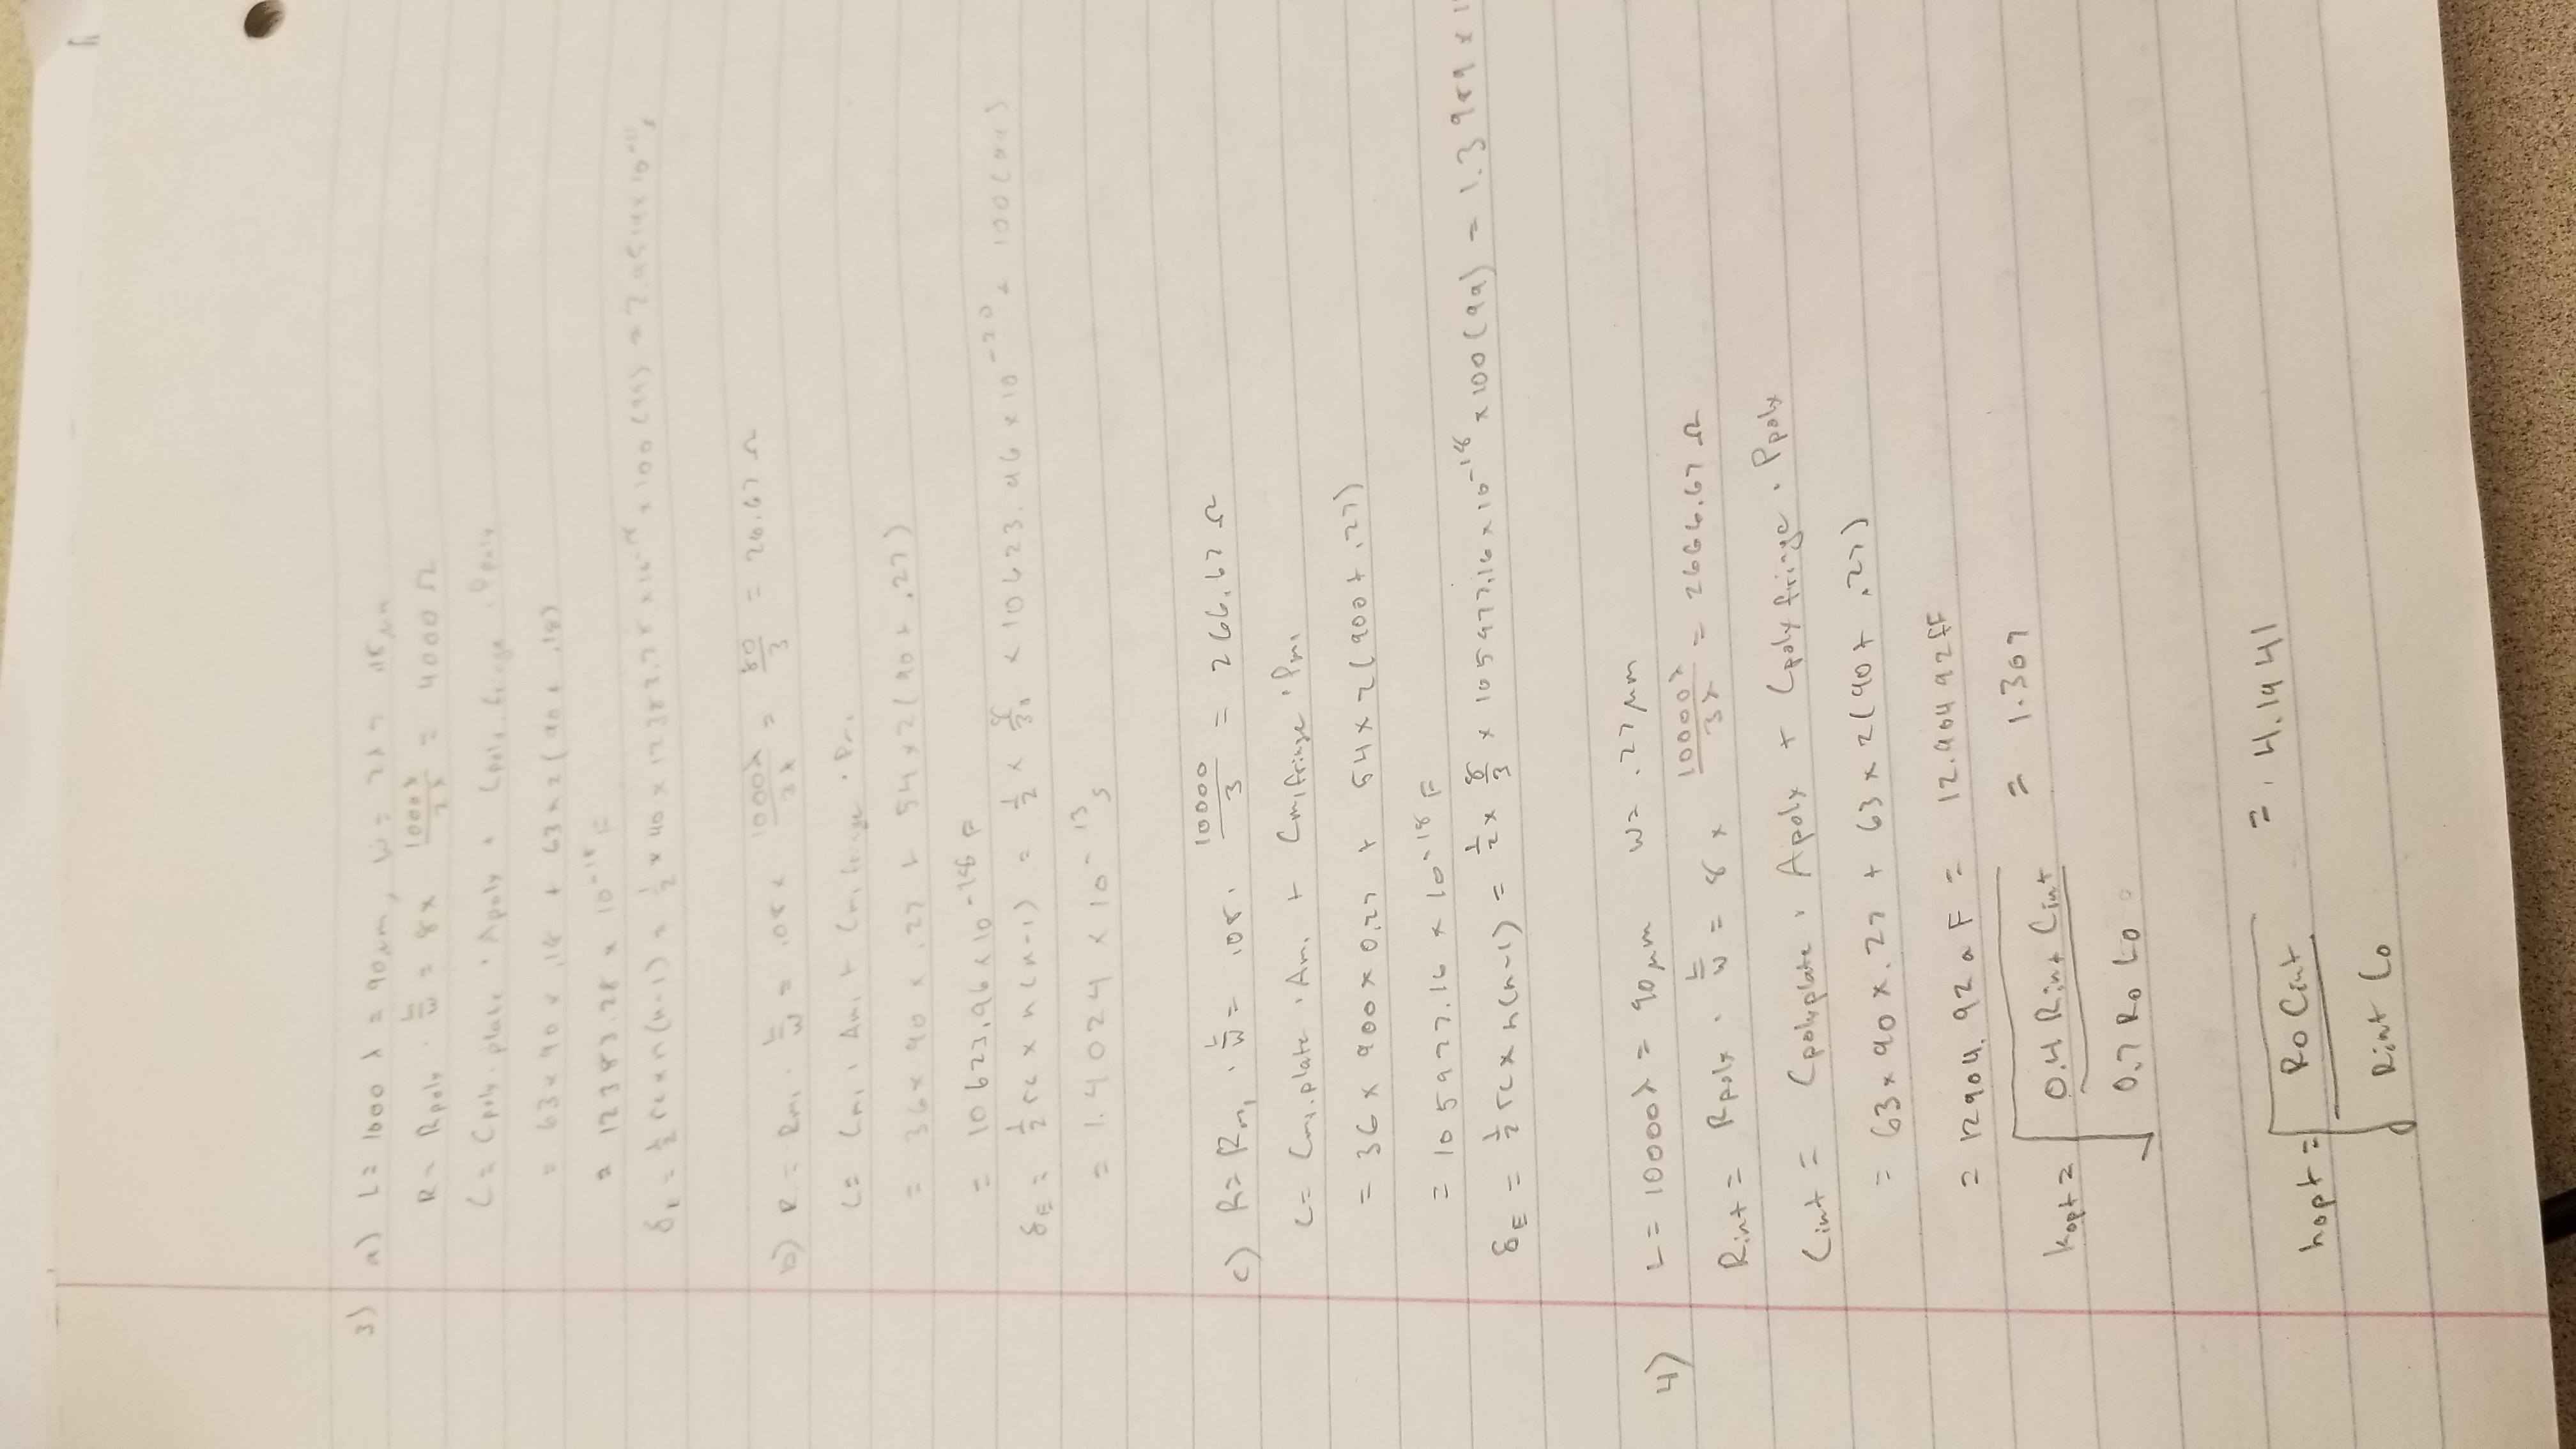 3) a) L = 1000 λ = 90 μm, W = 2λ = .18 μm
R = Rpoly · L/W = 8 x 1000λ/2λ = 4000 Ω
C = Cpoly.plate · Apoly + Cpoly.fringe · Ppoly
= 63 x 90 x .18 + 63 x 2(90 + .18)
= 12383.28 x 10^-18 F
δE = 1/2 rc x n(n-1) = 1/2 x 40 x 12383.28 x 10^-18 x 100(99) =
b) R = Rm1 · L/W = .08 x 1000λ/3λ = 80/3 = 26.67 Ω
C = Cm1 · Am1 + Cm1 fringe · Pm1
= 36 x 90 x .27 + 54 x 2(90 + .27)
= 10623.96 x 10^-18 F
δE = 1/2 rc x n(n-1) = 1/2 x 8/30 x 10623.96 x 10^-20 x 100(99)
= 1.4024 x 10^-13 s
c) R = Rm1 · L/W = .08 · 10000/3 = 266.67 Ω
C = Cm1.plate · Am1 + Cm1fringe · Pm1
= 36 x 900 x 0.27 + 54 x 2(900 + .27)
= 105977.16 x 10^-18 F
δE = 1/2 rc x n(n-1) = 1/2 x 8/3 x 105977.16 x 10^-18 x 100(99) = 1.3989 x 1
4) L = 10000λ = 90 μm W = .27 μm
Rint = Rpoly · L/W = 8 x 10000λ/3λ = 2666.67 Ω
Cint = Cpolyplate · Apoly + Cpoly fringe · Ppoly
= 63 x 90 x .27 + 63 x 2(90 + .27)
= 12904.92 aF = 12.90492 fF
kopt = √(0.4 Rint Cint / 0.7 R0 C0) = 1.307
hopt = √(R0 Cint / Rint C0) = 4.1941